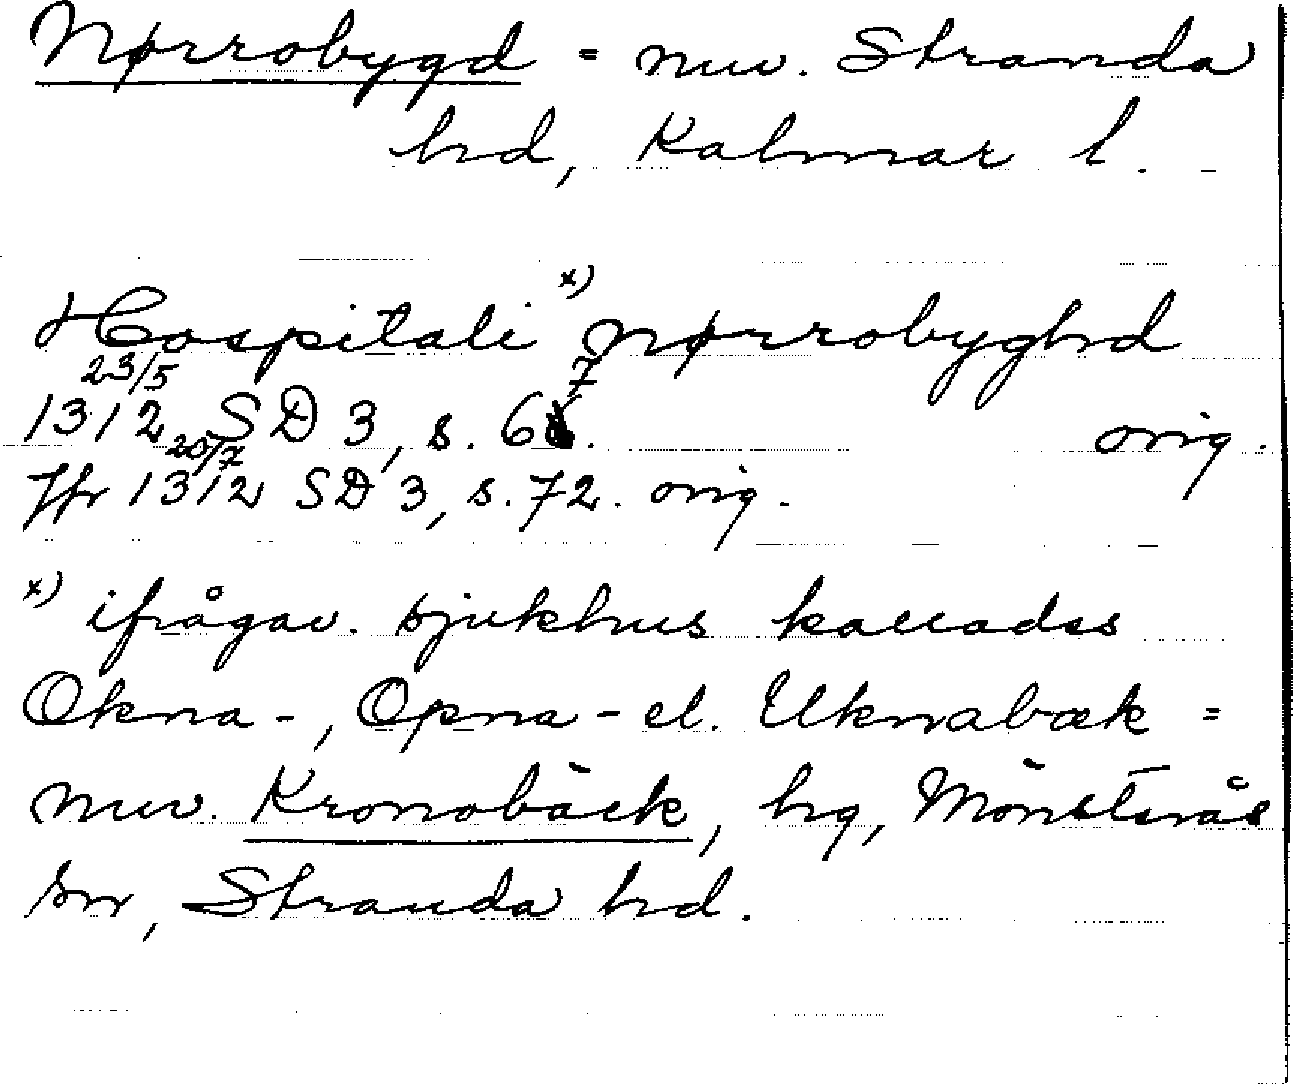 Nørrobygd = nuv. Stranda
hrd, Kalmar l.
Hospitali x) nørrobyghd
23/5 7
1312 SD 3, s. 6. orig.
20/7
Jfr 1312 SD 3, s. 72. orig.
x) ifrågav. sjukhus kallades
Okna-, Opna- el. Uknabæk =
nuv. Kronobäck, hg, Mönsterås
sn, Stranda hrd.